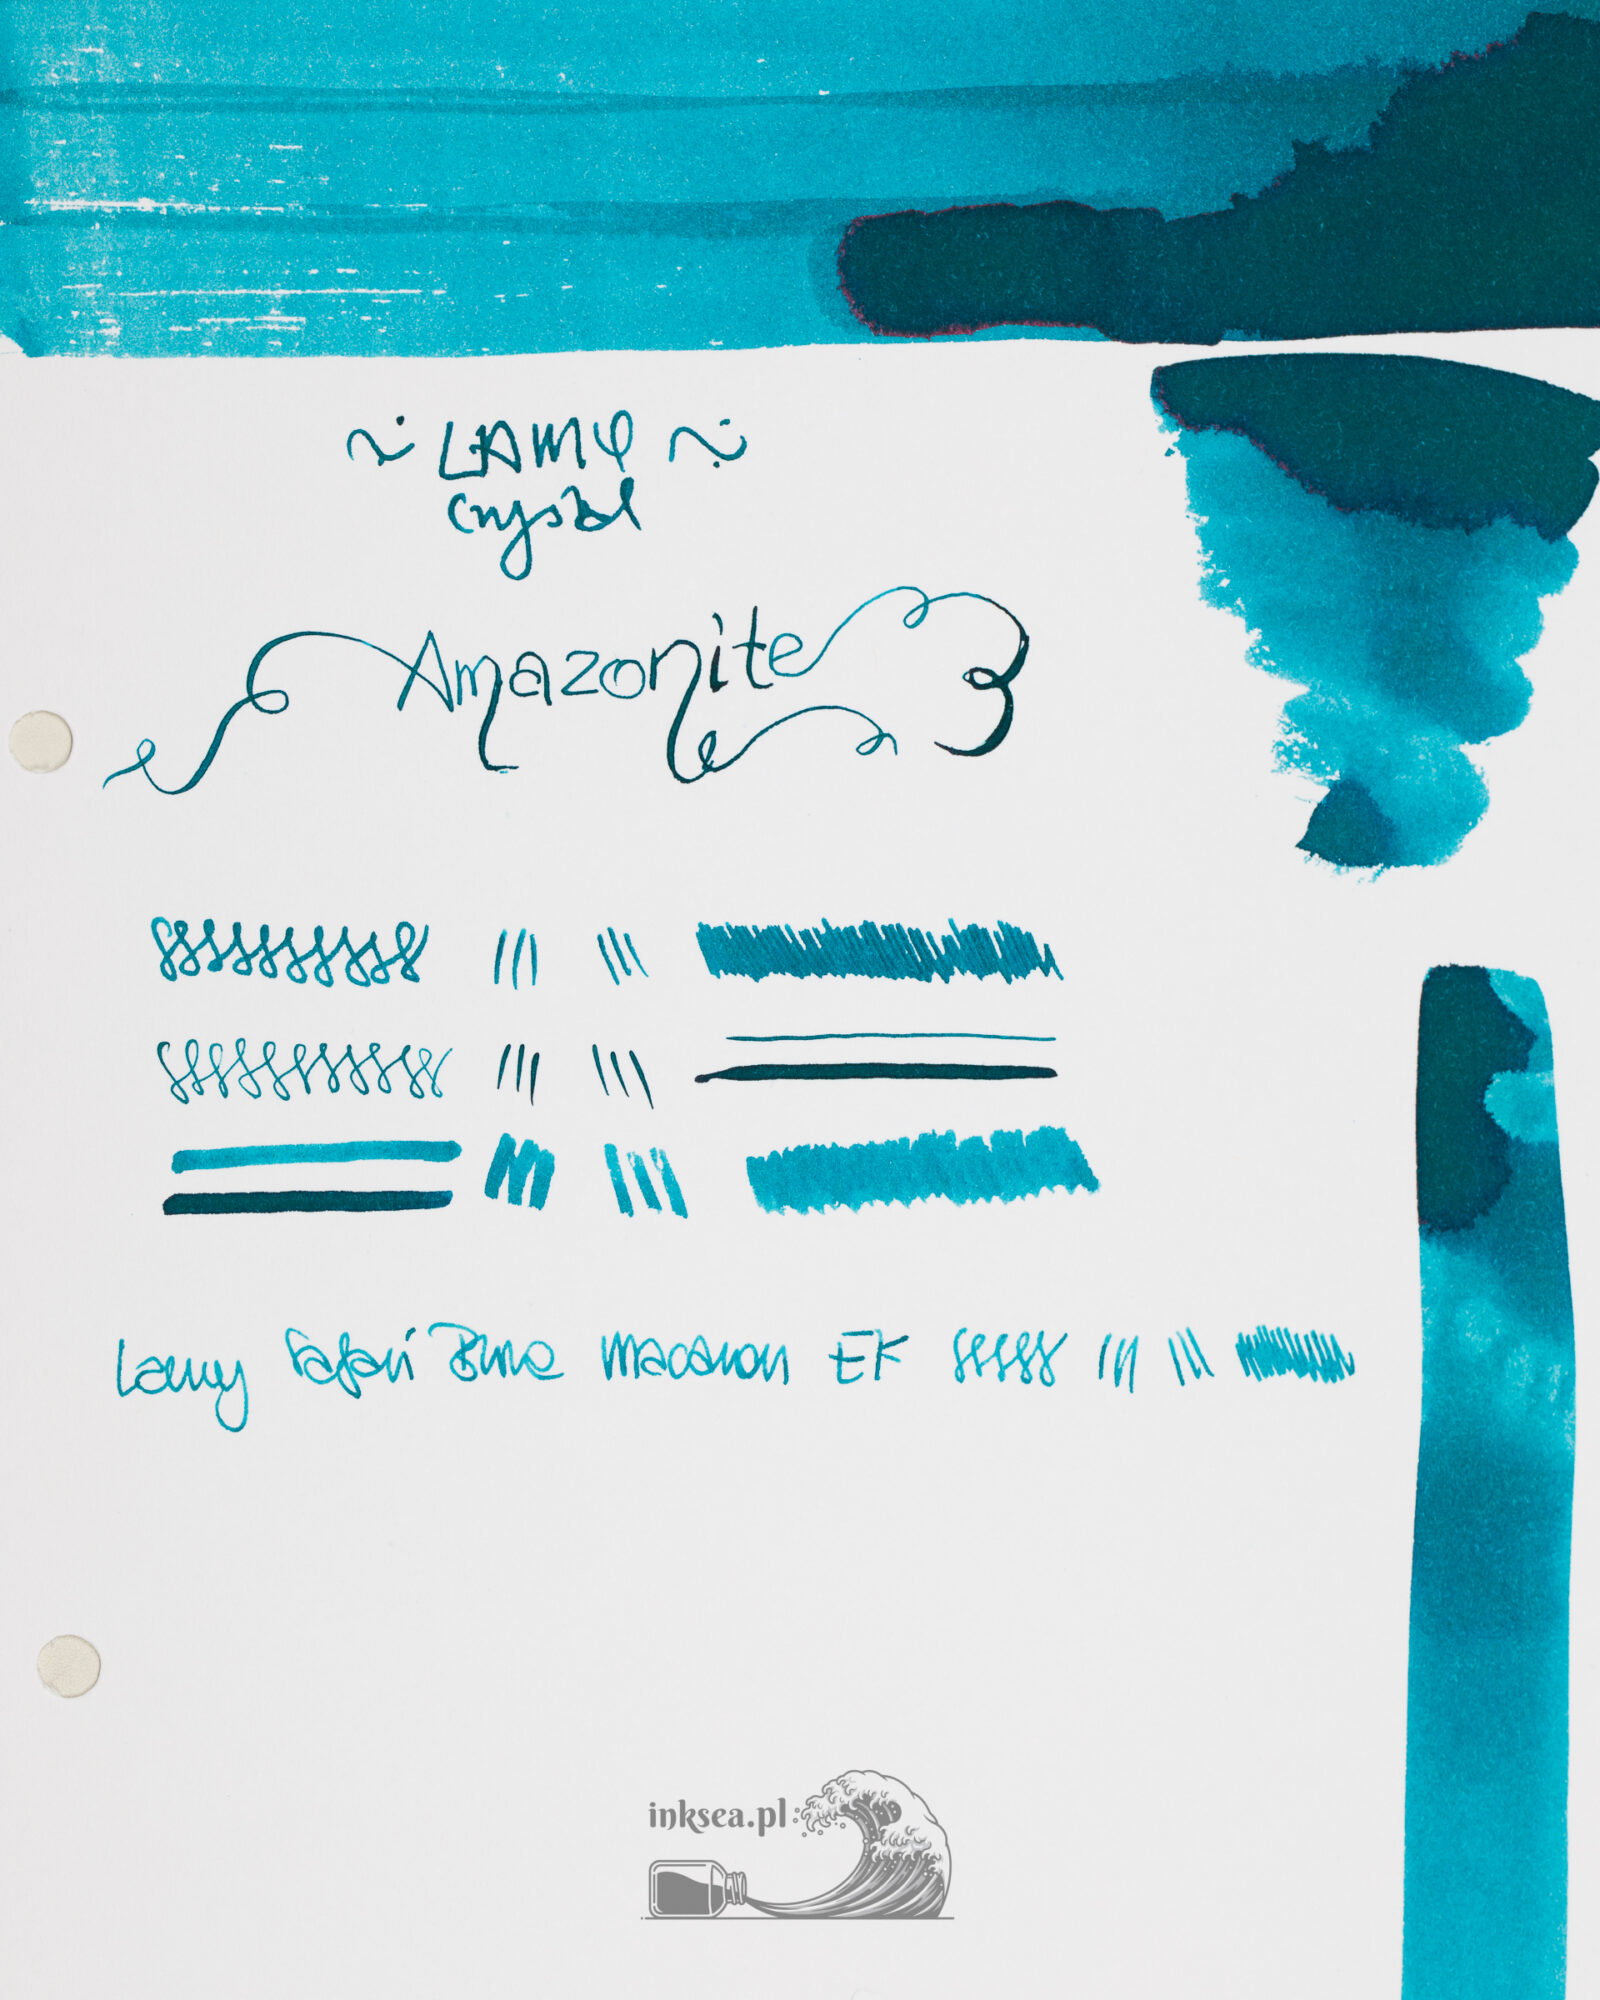 ~ LAMY ~
Crystal
Amazonite
Lamy Safari Blue Macaron EF
inksea.pl